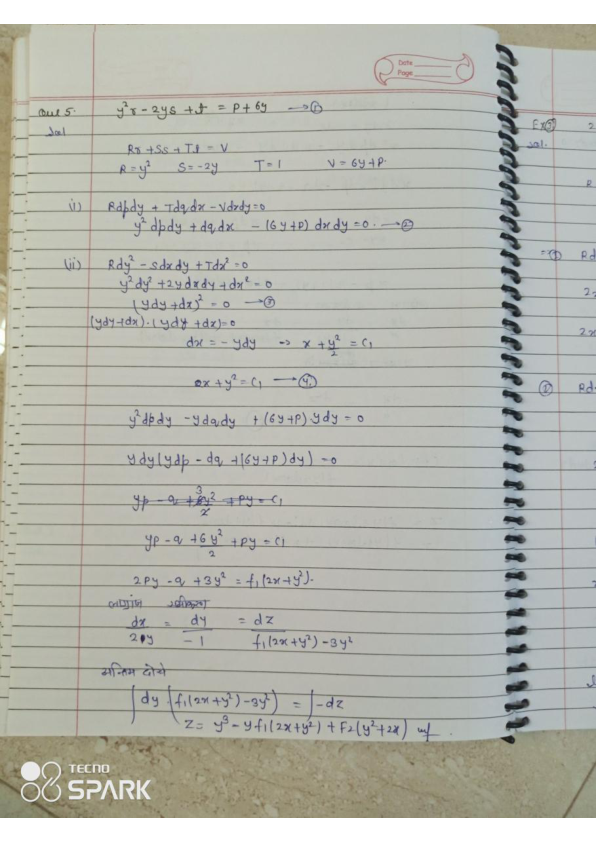 Date
Page
Que 5. y²r - 2ys + t = p + 6y → ①
Sol
Rr + Ss + Tt = V
R = y² S = -2y T = 1 V = 6y + p.
(i) Rdpdy + Tdqdx - Vdxdy = 0
y² dpdy + dqdx - (6y + p) dxdy = 0. → ②
(ii) Rdy² - Sdxdy + Tdx² = 0
y² dy² + 2ydxdy + dx² = 0
(ydy + dx)² = 0 → ③
(ydy + dx) . (ydy + dx) = 0
dx = - ydy → x + y²/2 = C₁
2x + y² = C₁ → ④
y² dpdy - ydqdy + (6y + p) ydy = 0
ydy (ydp - dq + (6y + p) dy) = 0
yp - q + 6y²/2 + py = C₁
2py - q + 3y² = f₁(2x + y²).
dx/2y = dy/-1 = dz/f₁(2x + y²) - 3y²
∫dy (f₁(2x + y²) - 3y²) = ∫-dz
z = y³ - yf₁(2x + y²) + F₂(y² + 2x)
Ex
sol.
TECNO
SPARK